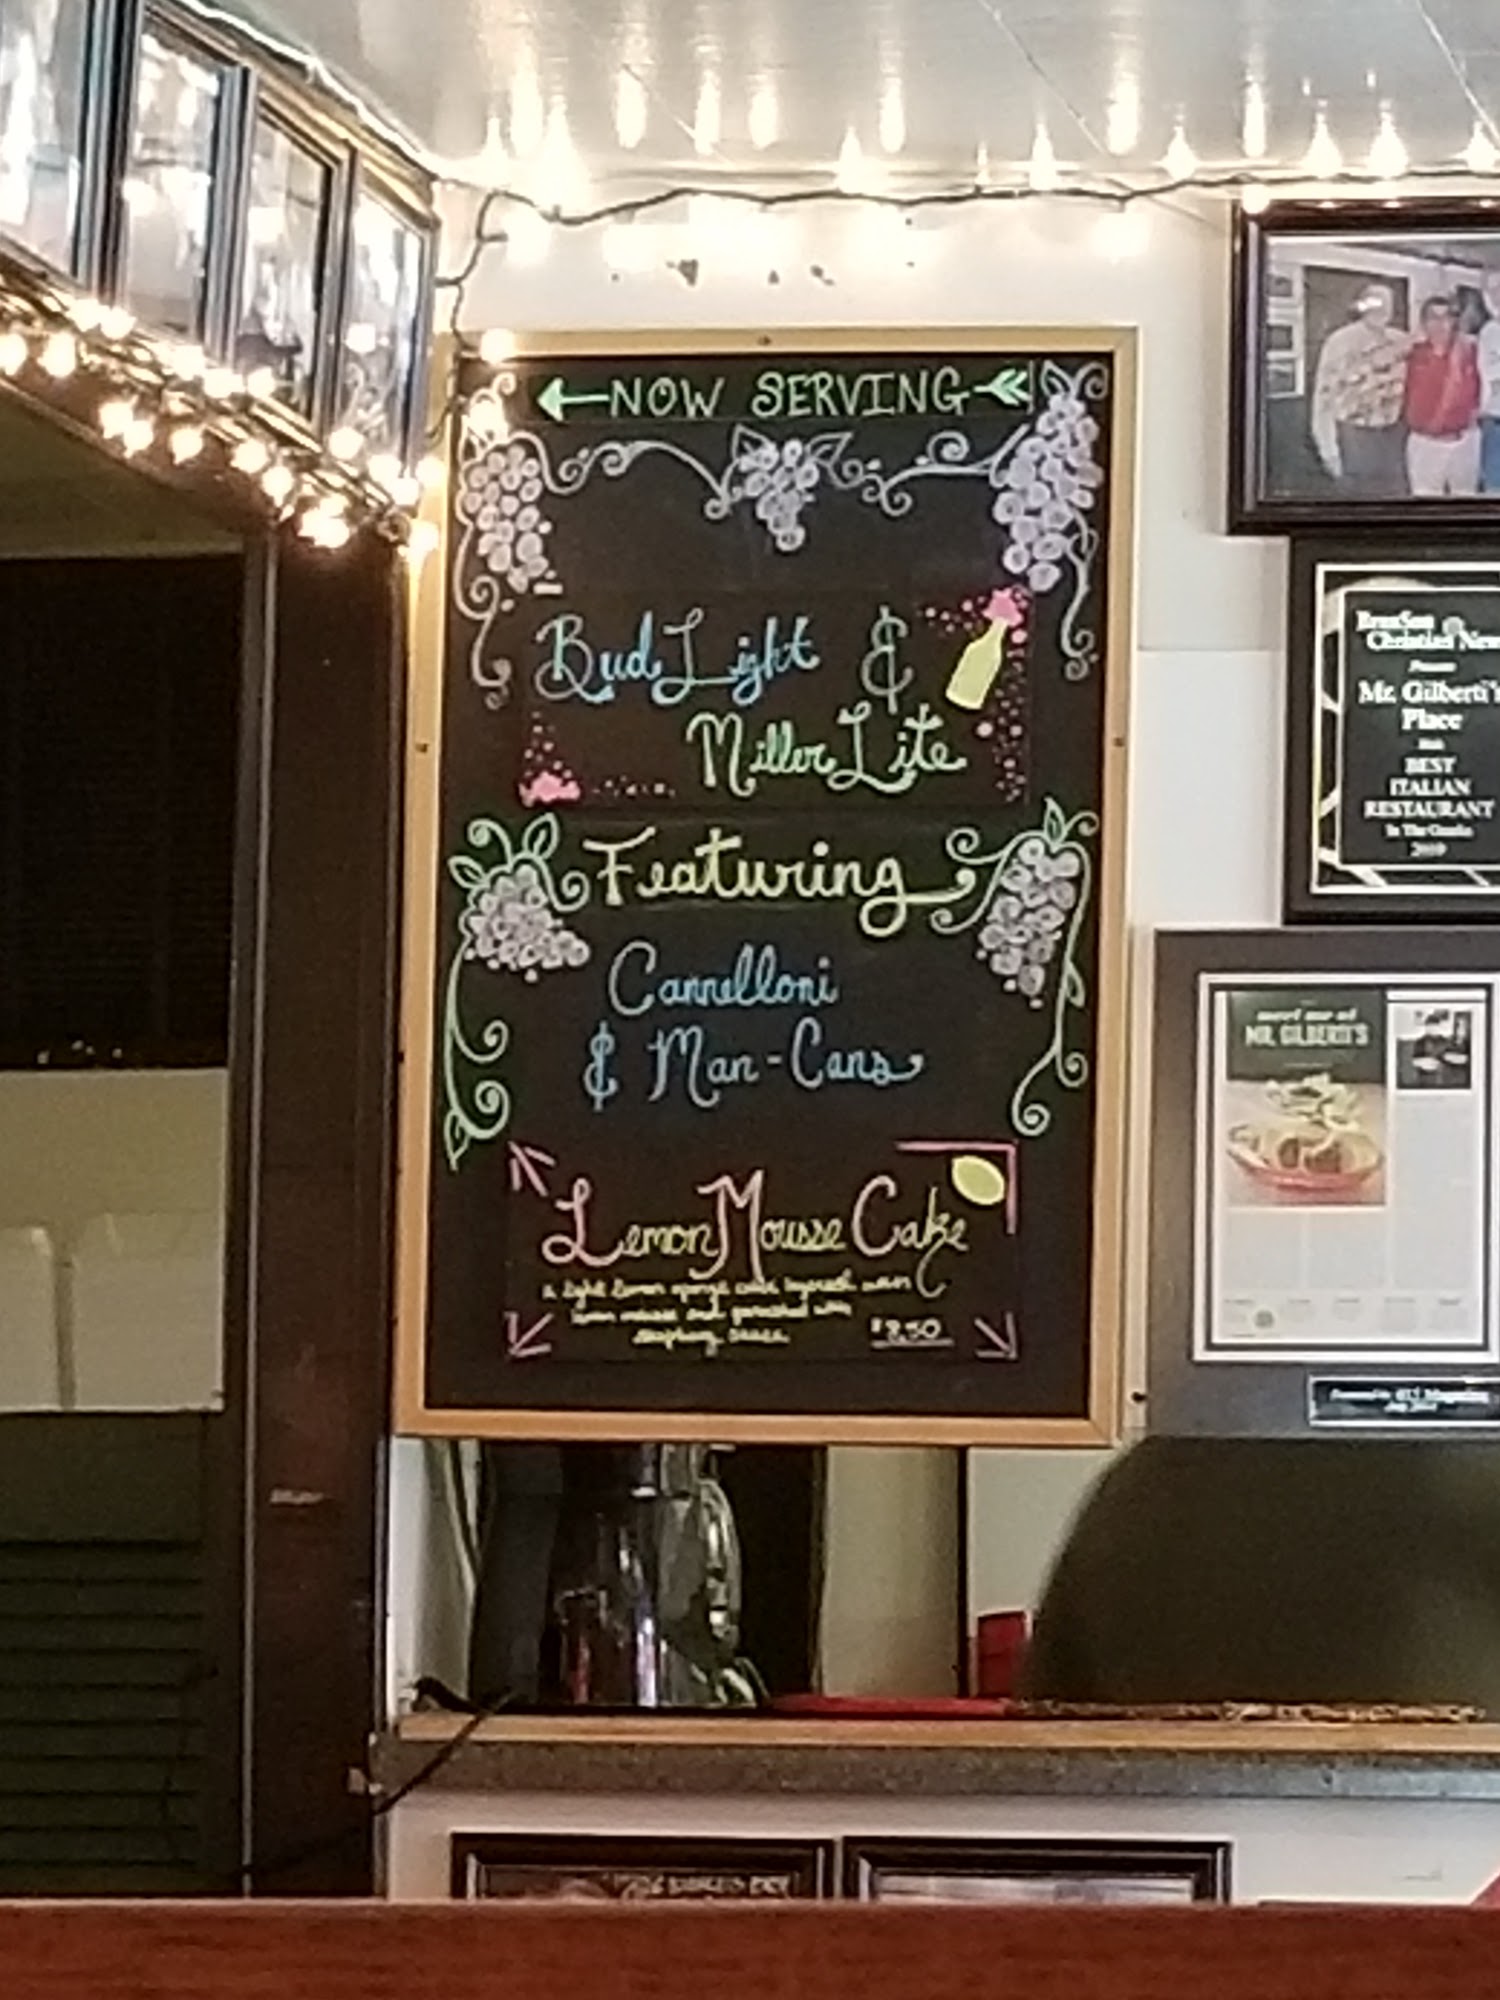 NOW SERVING
Bud Light &
Miller Lite
Featuring
Cannelloni
& Man-Cans
Lemon Mousse Cake
a light lemon sponge cake layered
lemon mousse and garnished with
sauce
$8.50
Branson
Christian News
Mr. Gilberti's
Place
BEST
ITALIAN
RESTAURANT
In The Ozarks
meet me at
MR. GILBERTI'S
417 Magazine